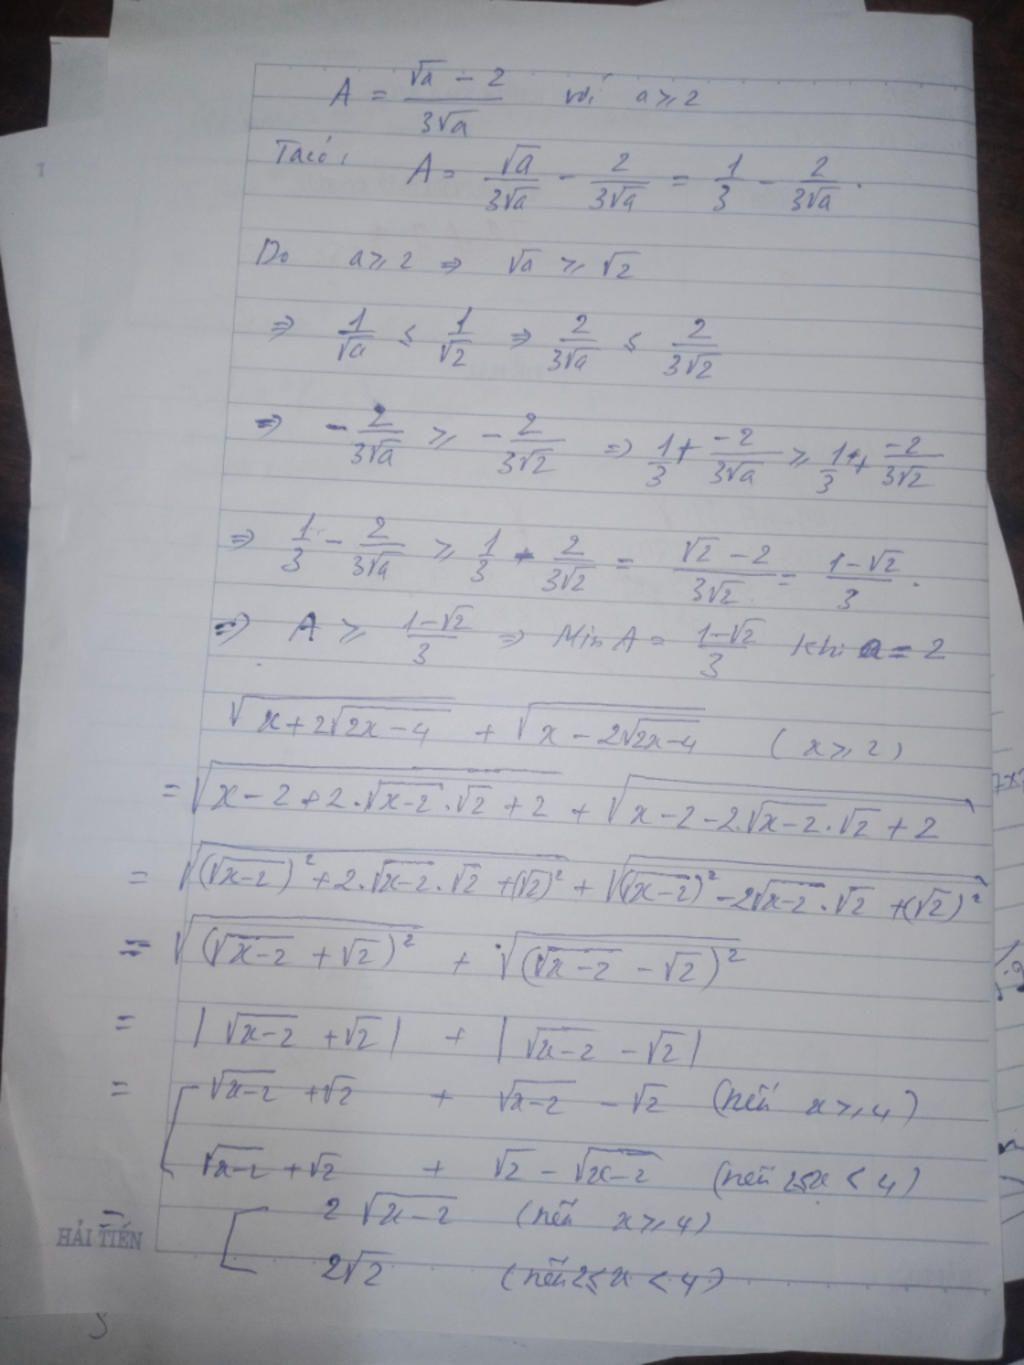 A = (√a - 2)/(3√a) với a ≥ 2
Ta có: A = √a/(3√a) - 2/(3√a) = 1/3 - 2/(3√a).
Do a ≥ 2 ⇒ √a ≥ √2
⇒ 1/√a ≤ 1/√2 ⇒ 2/(3√a) ≤ 2/(3√2)
⇒ -2/(3√a) ≥ -2/(3√2) ⇒ 1/3 + -2/(3√a) ≥ 1/3 + -2/(3√2)
⇒ 1/3 - 2/(3√a) ≥ 1/3 - 2/(3√2) = (√2 - 2)/(3√2) = (1-√2)/3.
⇒ A ≥ (1-√2)/3 ⇒ Min A = (1-√2)/3 khi a = 2
√(x + 2√(2x-4)) + √(x - 2√(2x-4)) (x ≥ 2)
= √(x - 2 + 2.√(x-2).√2 + 2) + √(x - 2 - 2.√(x-2).√2 + 2)
= √((√(x-2))² + 2.√(x-2).√2 + (√2)²) + √((√(x-2))² - 2√(x-2).√2 + (√2)²)
= √((√(x-2) + √2)²) + √((√(x-2) - √2)²)
= |√(x-2) + √2| + |√(x-2) - √2|
= [ √(x-2) + √2 + √(x-2) - √2 (nếu x ≥ 4)
√(x-2) + √2 + √2 - √(x-2) (nếu 2≤x < 4)
[ 2√(x-2) (nếu x ≥ 4)
2√2 (nếu 2≤x < 4)
HẢI TIẾN